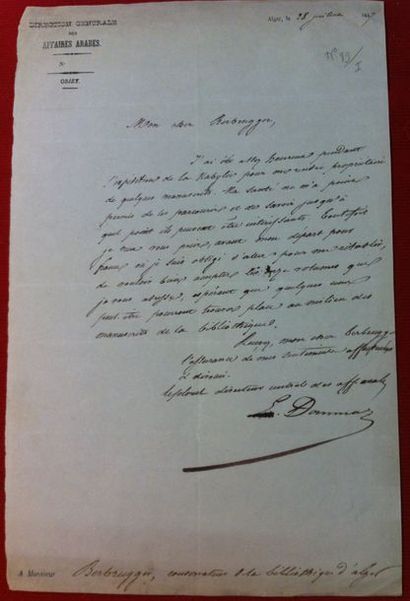 DIRECTION GÉNÉRALE
DES
AFFAIRES ARABES.
N°
OBJET.
Alger, le 28 juillet 1847
N° 92/I
Mon cher Berbrugger,
J'ai été assez heureux pendant
l'expédition de la Kabylie pour me rendre propriétaire
de quelques manuscrits. Ma santé ne m'a point
permis de les parcourir et de savoir jusqu'à
quel point ils peuvent être intéressants. Toutefois
je veux vous prier, avant mon départ pour
France où je suis obligé d'aller pour me rétablir,
de vouloir bien accepter les onze volumes que
je vous adresse, espérant que quelques uns
peut-être pourront trouver place au milieu des
manuscrits de la bibliothèque.
Recevez, mon cher Berbrugger
l'assurance de mes sentiments affectueux
et dévoués.
Le Colonel directeur central des aff. arabes
E. Daumas
A Monsieur Berbrugger, conservateur de la bibliothèque d'Alger